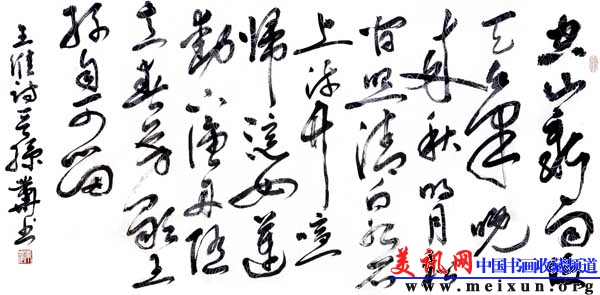 空山新雨後
天氣晚
來秋明月松
间照清泉石
上流竹喧
歸浣女蓮
動下漁舟隨
意春芳歇王
孫自可留
王維詩 孫華书
美讯网 中国书画收藏频道
www.meixun.org